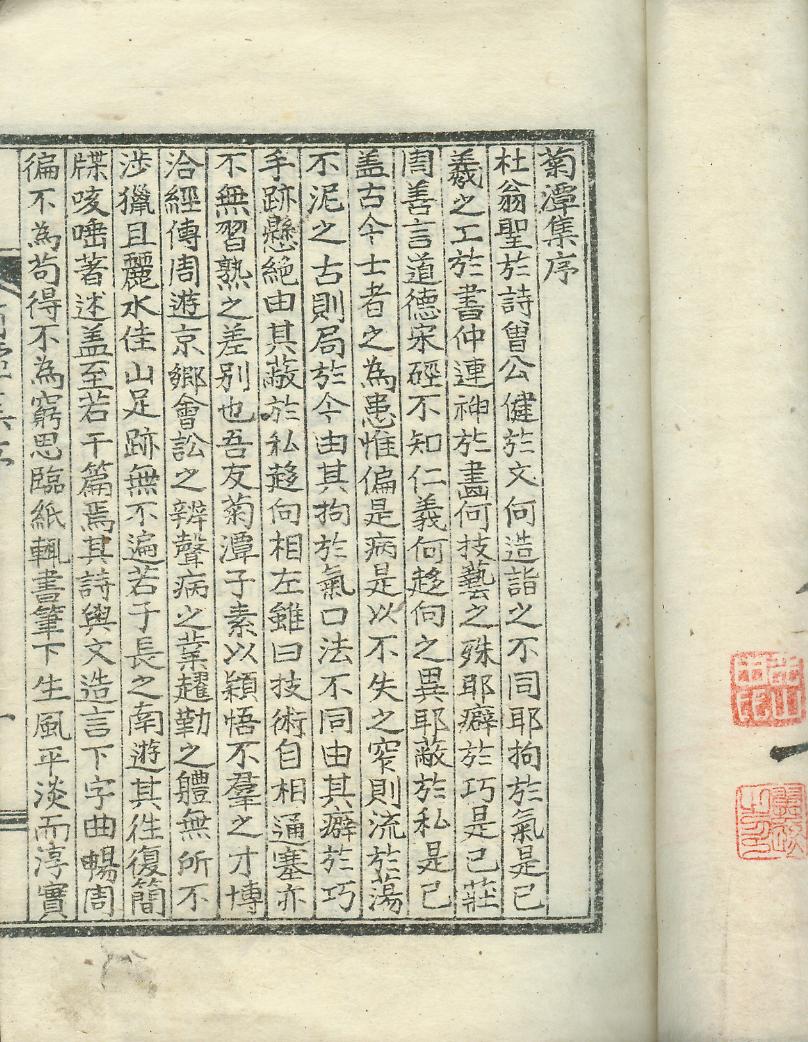 菊潭集序
杜翁聖於詩曾公健於文何造詣之不同耶拘於氣是已
羲之工於書仲連神於畵何技藝之殊耶癖於巧是已莊
周善言道德宋硜不知仁義何趍向之異耶蔽於私是已
盖古今士者之為患惟偏是病是以不失之窄則流於蕩
不泥之古則局於今由其拘於氣口法不同由其癖於巧
手跡懸絶由其蔽於私趍向相左雖曰技術自相通塞亦
不無習熟之差別也吾友菊潭子素以穎悟不羣之才博
洽經傳周遊京鄉會訟之辨聲病之業趯勤之軆無所不
涉獵且麗水佳山足跡無不遍若子長之南遊其徃復簡
牒咳唾著述盖至若干篇焉其詩與文造言下字曲暢周
徧不為苟得不為窮思臨紙輒書筆下生風平淡而淳實